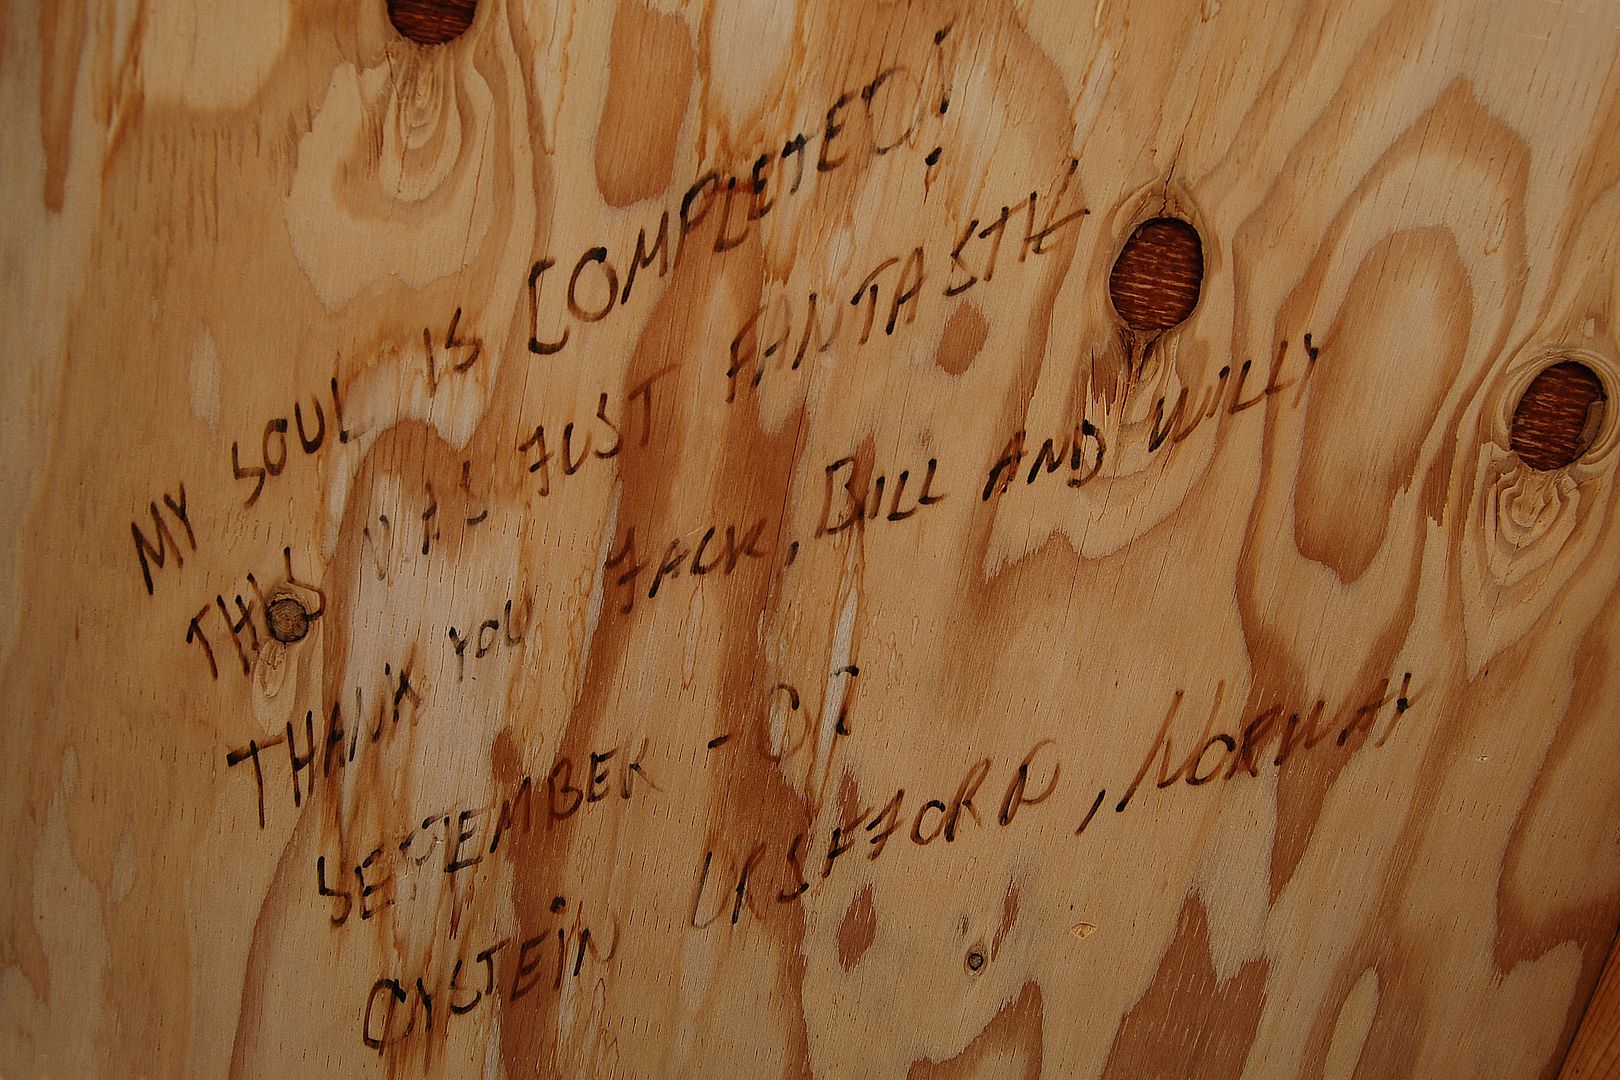 MY SOUL IS COMPLETED!
THIS WAS JUST FANTASTIC
THANX YOU JACK, BILL AND WILLY
SEPTEMBER - 07
OYSTEIN , NORWAY